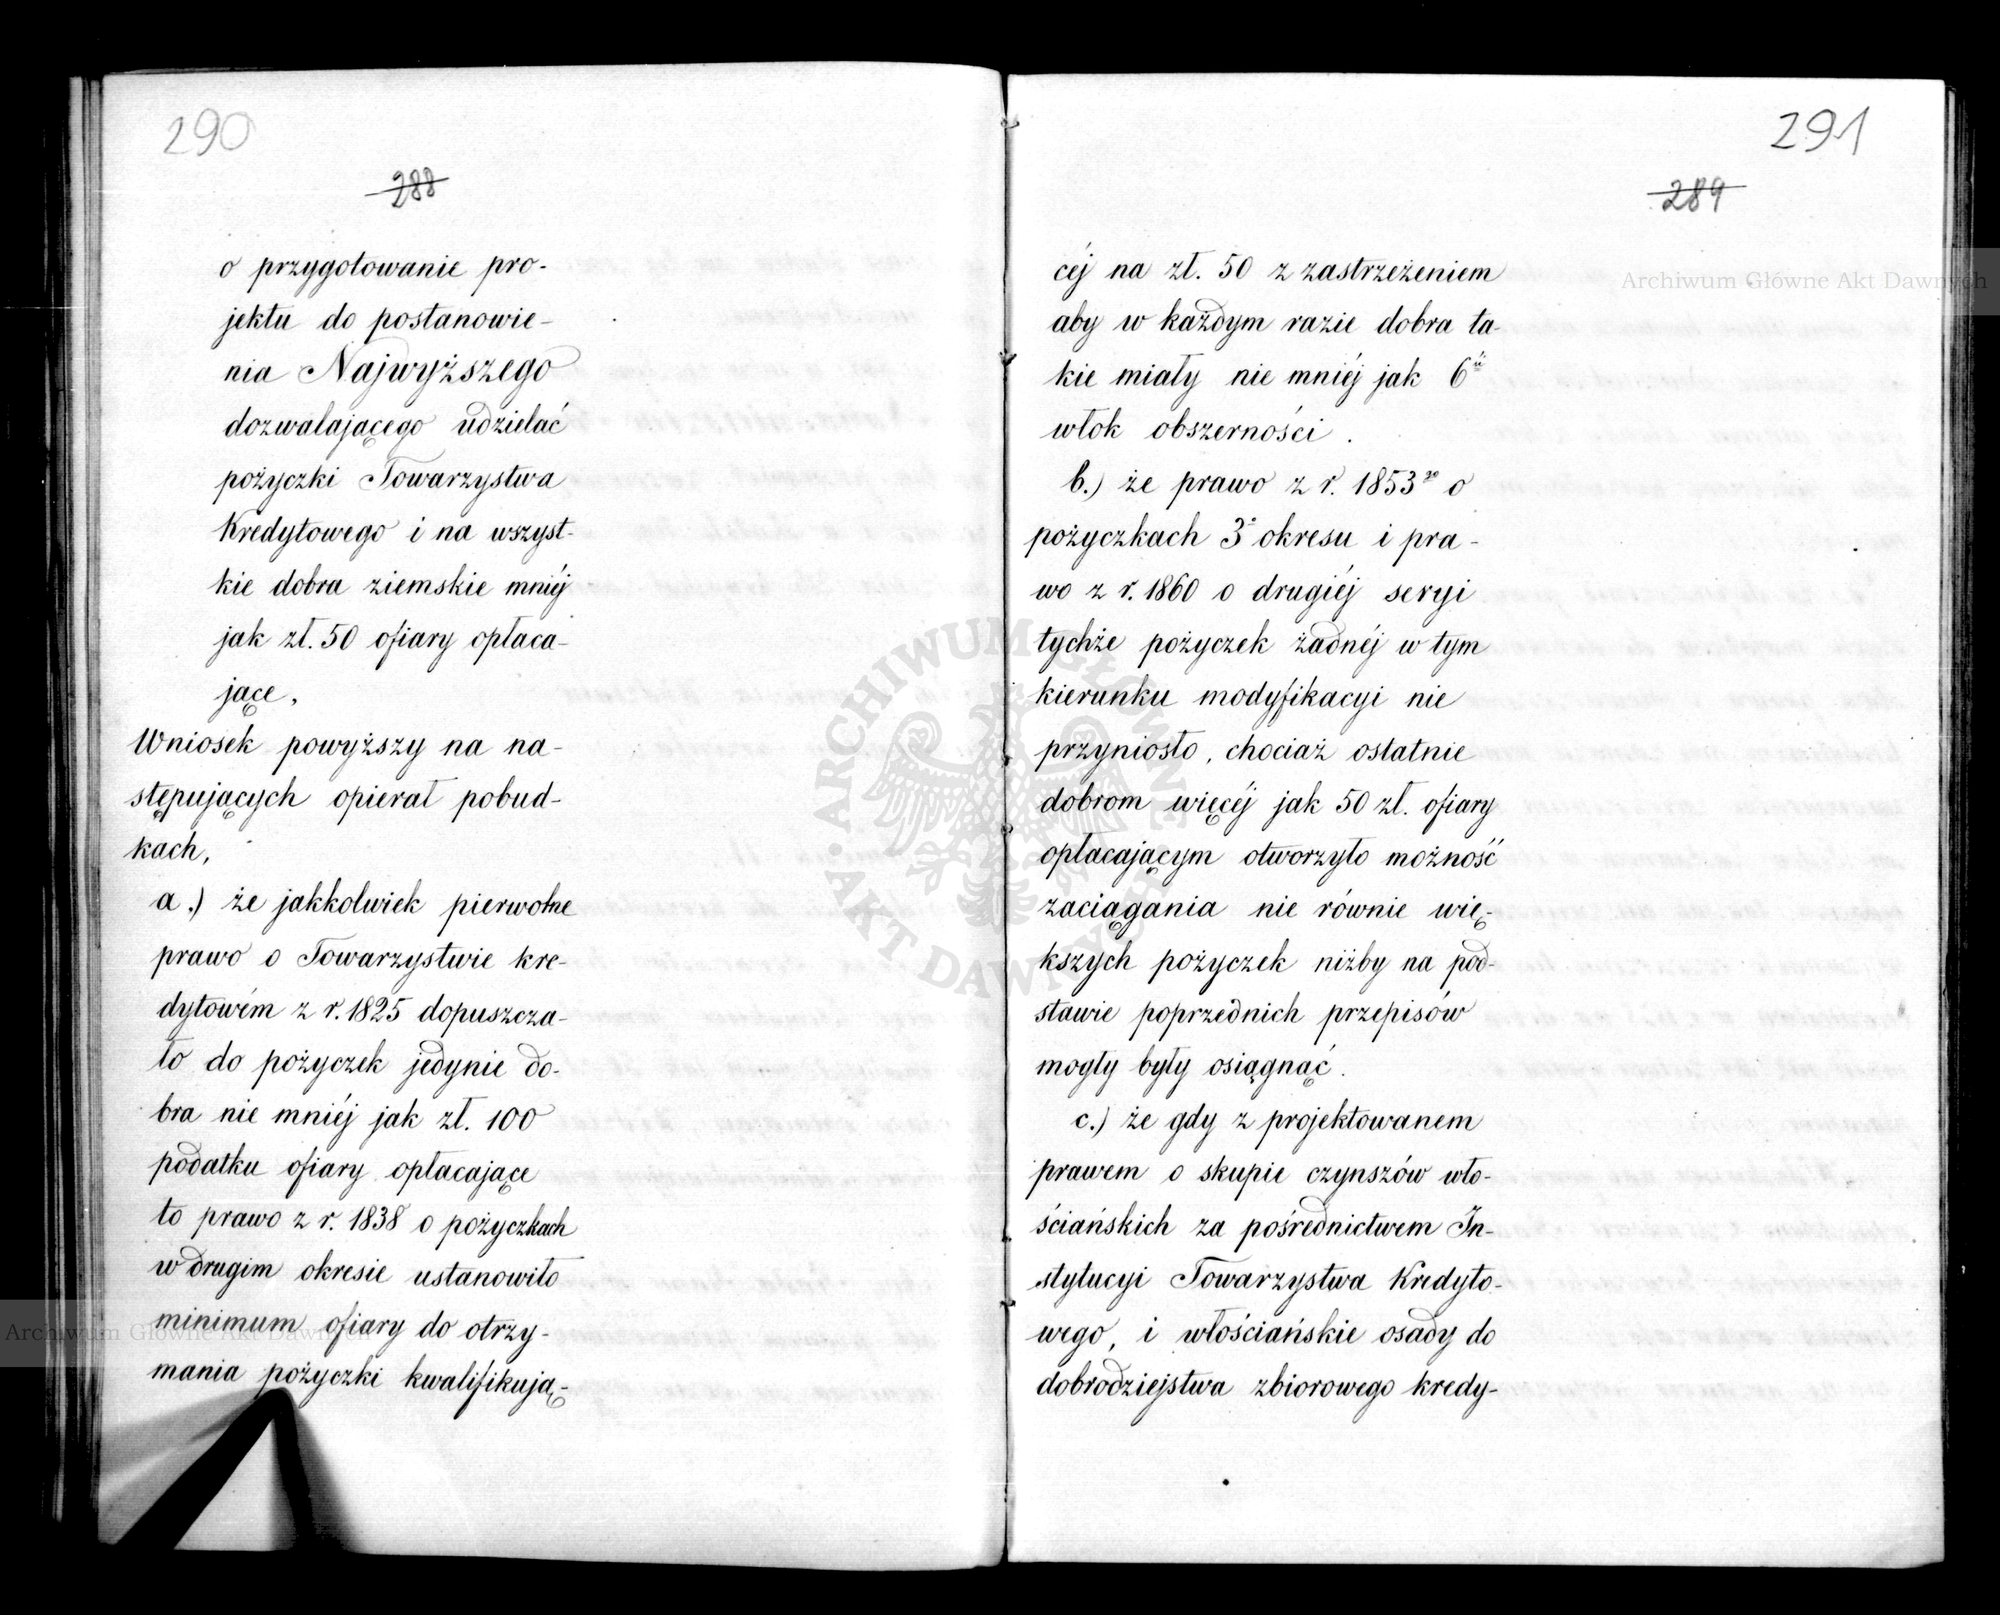 290
288
o przygotowanie pro-
jektu do postanowie-
nia Najwyższego
dozwalającego udzielać
pożyczki Towarzystwa
Kredytowego i na wszyst-
kie dobra ziemskie mniéj
jak zł. 50 ofiary opłaca-
jące,
Wniosek powyższy na na-
stępujących opierał pobud-
kach,
a.) że jakkolwiek pierwotne
prawo o Towarzystwie kre-
dytowém z r. 1825 dopuszcza-
ło do pożyczek jedynie do-
bra nie mniéj jak zł. 100
podatku ofiary opłacające
to prawo z r. 1838 o pożyczkach
w drugim okresie ustanowiło
minimum ofiary do otrzy-
mania pożyczki kwalifikują-
291
289
céj na zł. 50 z zastrzeżeniem
aby w każdym razie dobra ta-
kie miały nie mniéj jak 6ú
włok obszerności.
b.) że prawo z r. 1853go o
pożyczkach 3o okresu i pra-
wo z r. 1860 o drugiéj seryi
tychże pożyczek żadnéj w tym
kierunku modyfikacyi nie
przyniosło, chociaż ostatnie
dobrom więcéj jak 50 zł. ofiary
opłacającym otworzyło możność
zaciągania nie równie wię-
kszych pożyczek niżby na pod-
stawie poprzednich przepisów
mogły były osiągnąć.
c.) że gdy z projektowanem
prawem o skupie czynszów wło-
ściańskich za pośrednictwem In-
stytucyi Towarzystwa Kredyto-
wego, i włościańskie osady do
dobrodziejstwa zbiorowego kredy-
Archiwum Główne Akt Dawnych
Archiwum Główne Akt Dawnych
ARCHIWUM GŁÓWNE AKT DAWNYCH